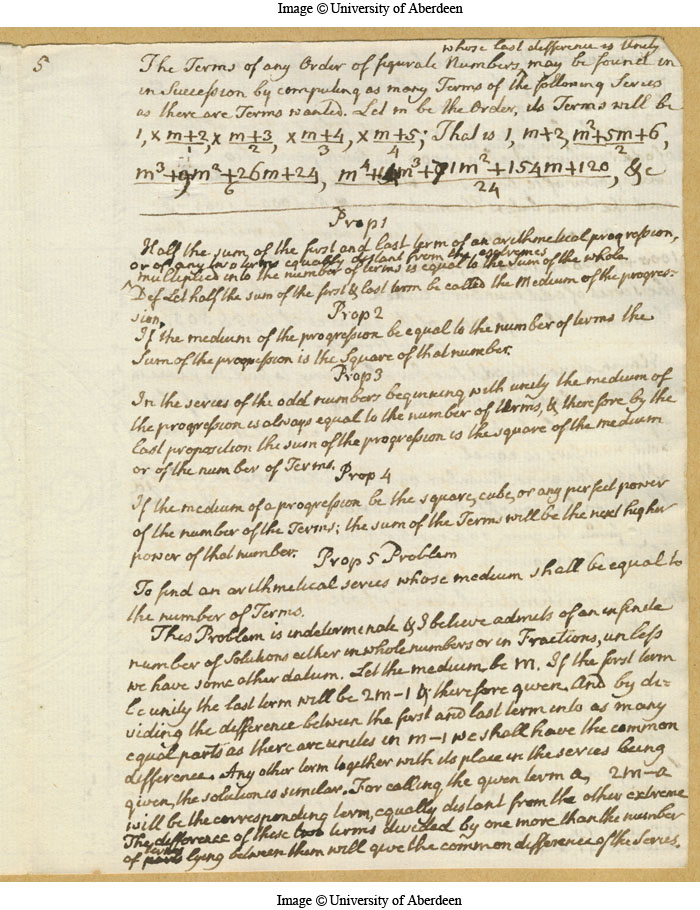 Image © University of Aberdeen
5
whose last difference is Unity
The Terms of any Order of figurate Numbers, may be found in
in Succession by computing as many Terms of the following Series
as there are Terms wanted. Let m be the Order, its Terms will be
1, × m+2/1, × m+3/2, × m+4/3, × m+5/4; That is 1, m+2, m²+5m+6/2,
m³+9m²+26m+24/6, m⁴+14m³+71m²+154m+120/24, &c
Prop 1
Half the sum of the first and last term of an arithmetical progression,
or of any two terms equally distant from the extremes
multiplied into the number of terms is equal to the sum of the whole.
Def Let half the sum of the first & last term be called the Medium of the progres-
sion.
Prop 2
If the medium of the progression be equal to the number of terms the
Sum of the progression is the Square of that number.
Prop 3
In the series of the odd numbers beginning with unity the medium of
the progression is always equal to the number of terms, & therefore by the
last proposition the sum of the progression is the square of the medium
or of the number of Terms.
Prop 4
If the medium of a progression be the square, cube, or any perfect power
of the number of the Terms; the sum of the Terms will be the next higher
power of that number.
Prop 5 Problem
To find an arithmetical series whose medium shall be equal to
the number of Terms.
This Problem is indeterminate & I believe admits of an infinite
number of Solutions either in whole numbers or in Fractions, unless
we have some other datum. Let the medium be m. If the first term
be unity the last term will be 2m-1 & therefore given. And by di-
viding the difference between the first and last term into as many
equal parts as there are unites in m-1 we shall have the common
difference. Any other term together with its place in the series being
given, the solution is similar. For calling the given term a, 2m-a
will be the corresponding term, equally distant from the other extreme
The difference of these two terms divided by one more than the number
of terms lying between them will give the common difference of the Series.
Image © University of Aberdeen